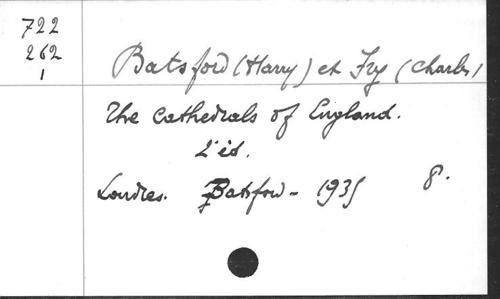 722
262
1
Batsford (Harry) et Fry (Charles)
The Cathedrals of England.
2e éd.
Londres. Batsford - 1935 8°.